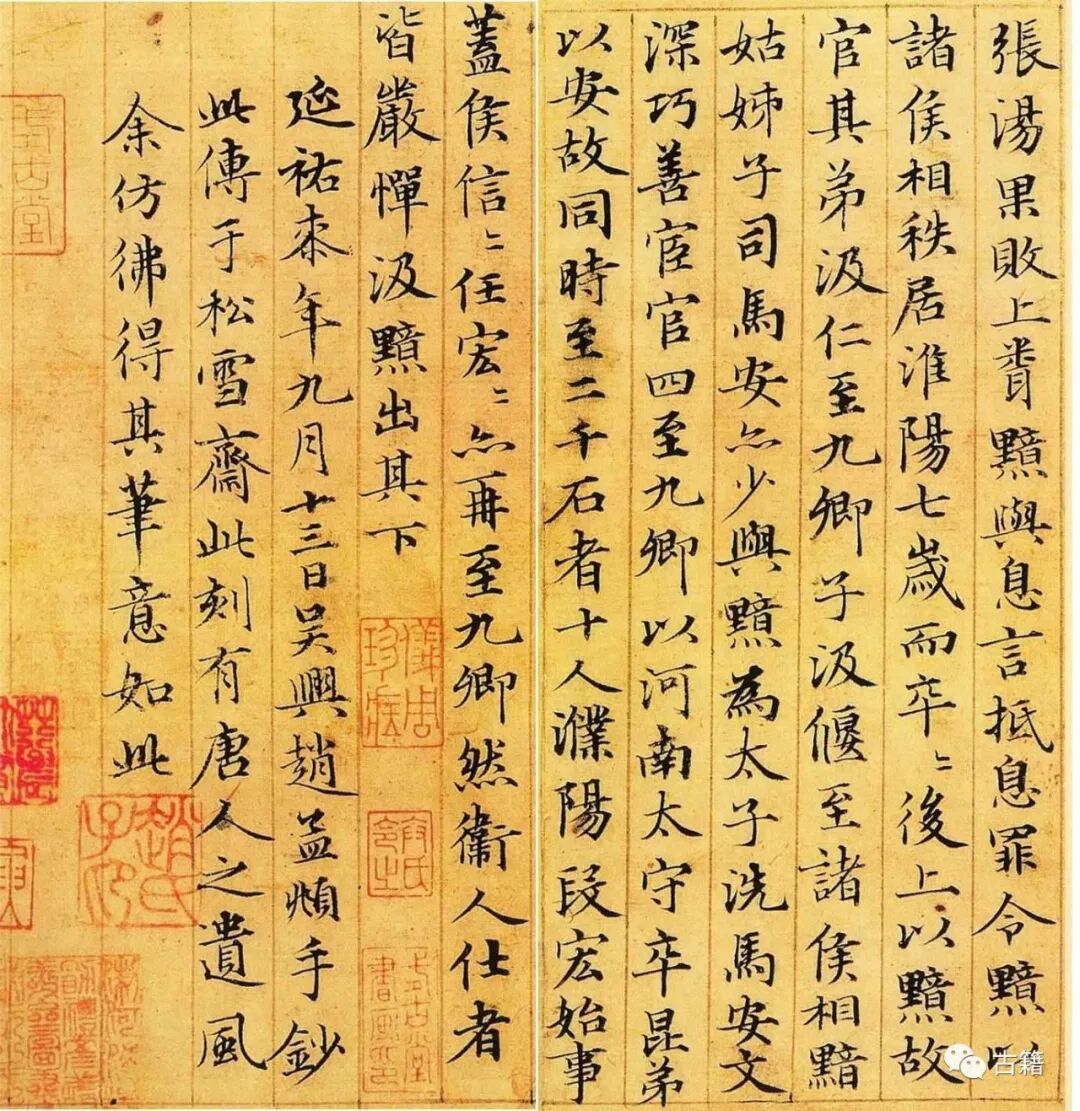 張湯果敗上聞黯與息言抵息罪令黯以
諸侯相秩居淮陽七歲而卒〻後上以黯故
官其弟汲仁至九卿子汲偃至諸侯相黯
姑姊子司馬安亦少與黯為太子洗馬安文
深巧善宦官四至九卿以河南太守卒昆弟
以安故同時至二千石者十人濮陽段宏始事
蓋侯信〻任宏〻亦再至九卿然衛人仕者
皆嚴憚汲黯出其下
延祐柒年九月十三日吳興趙孟頫手鈔
此傳于松雪齋此刻有唐人之遺風
余仿彿得其筆意如此
趙氏子昂
古籍